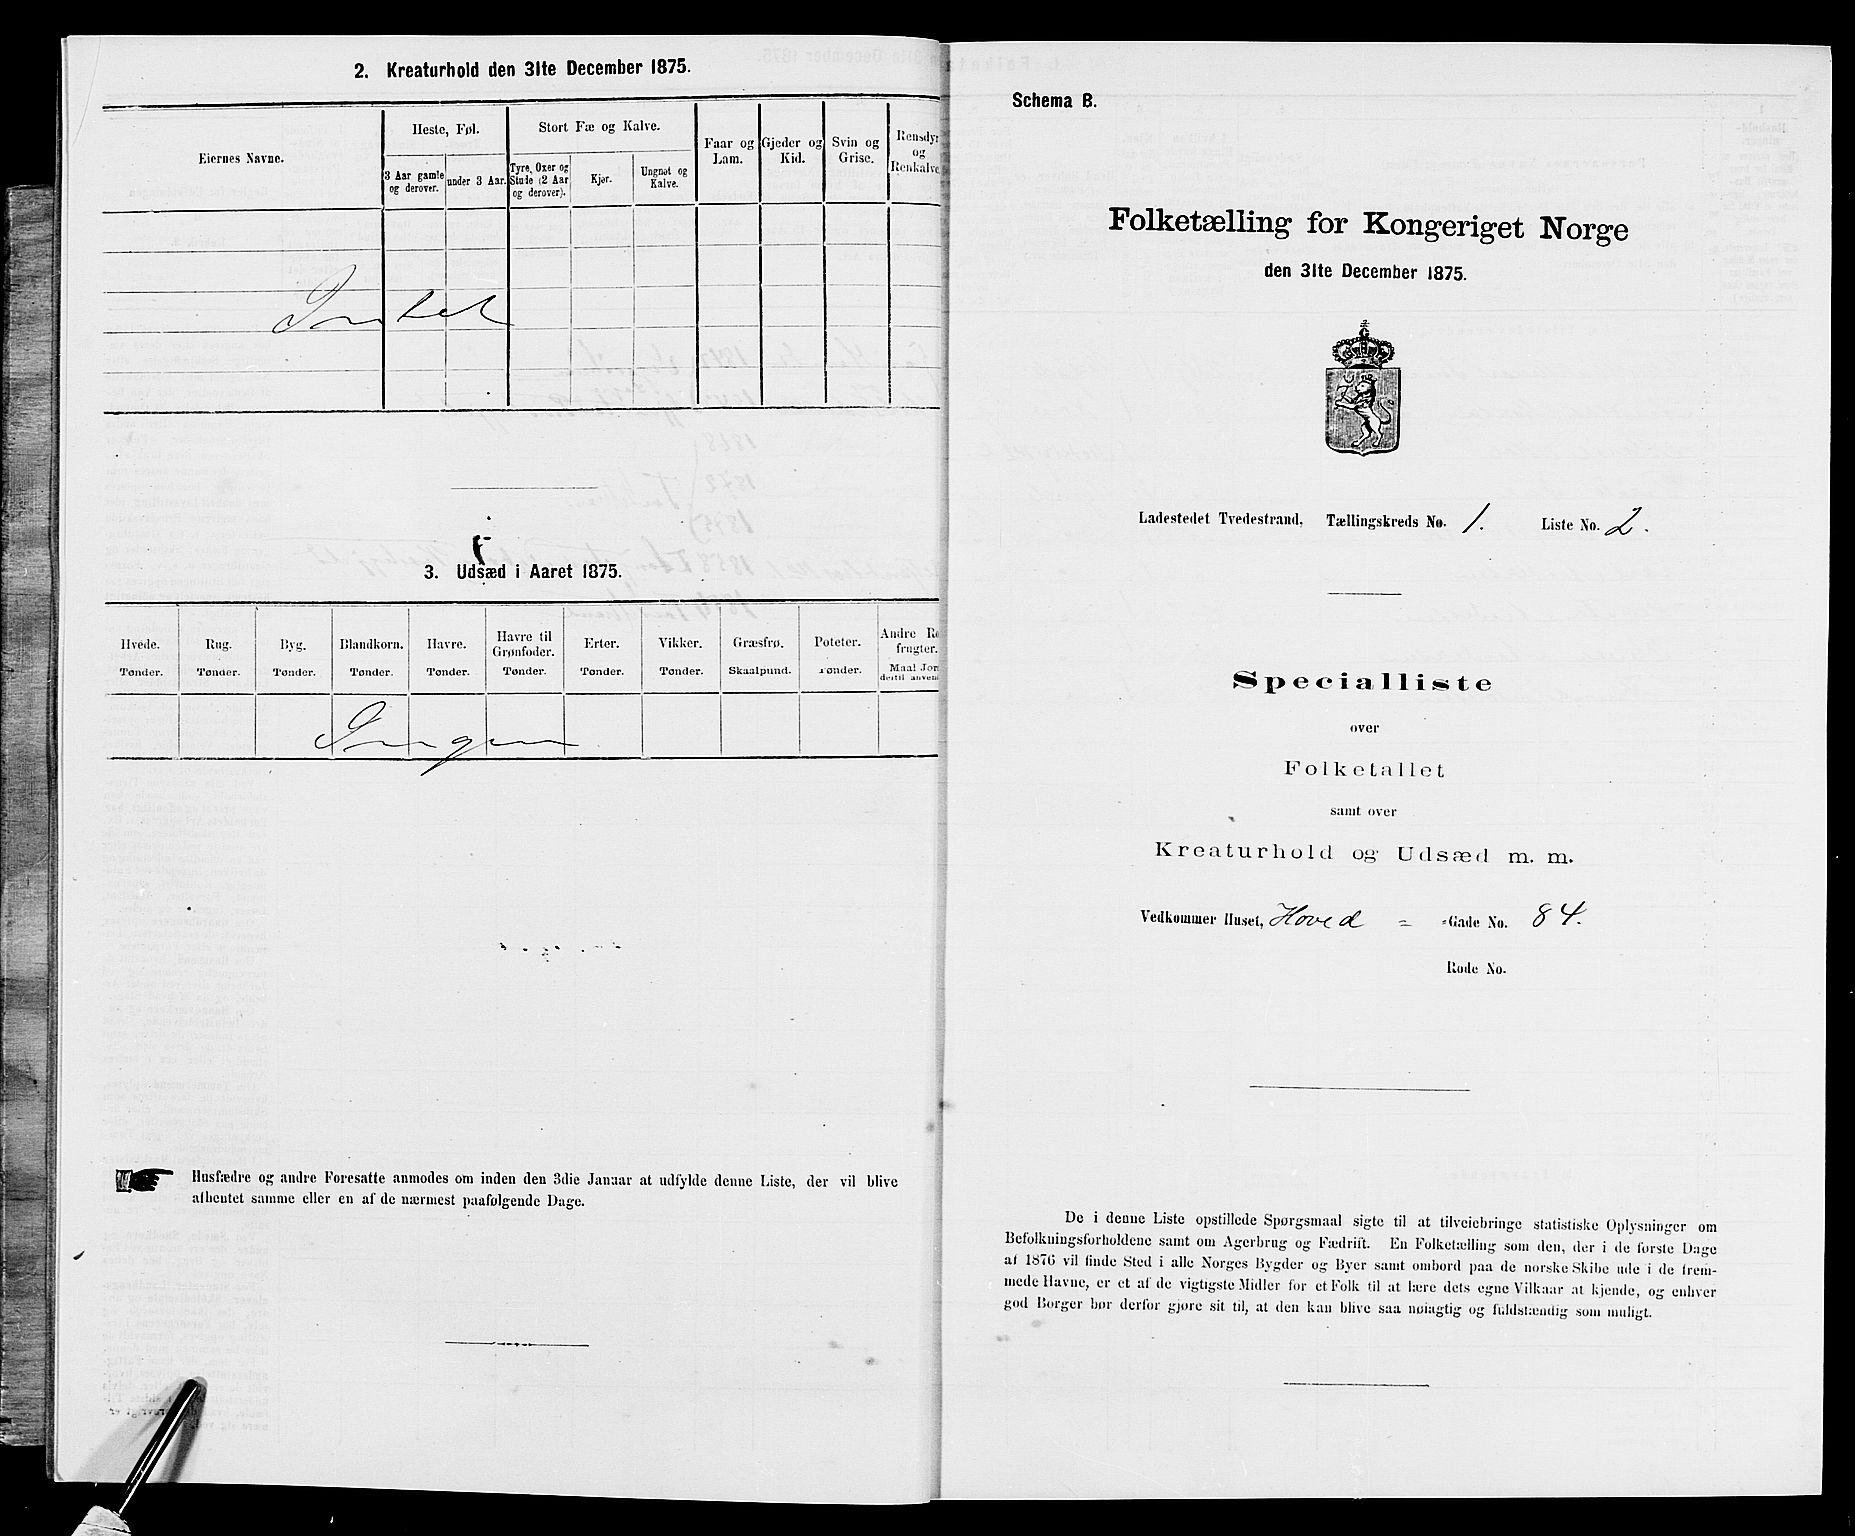 2. Kreaturhold den 31te December 1875.
Eiernes Navne.
Heste, Føl.
Stort Fæ og Kalve.
Faar og Lam.
Gjeder og Kid.
Svin og Grise.
Rensdyr og Renkalve
3 Aar gamle og derover.
under 3 Aar.
Tyre, Oxer og Stude (2 Aar og derover).
Kjør.
Ungnøt og Kalve.
Intet
3. Udsæd i Aaret 1875.
Hvede. Rug. Byg. Blandkorn. Havre. Havre til Grønfoder. Erter. Vikker. Græsfrø. Poteter. Andre Ro frugter.
Tønder. Tønder. Tønder. Tønder. Tønder. Tønder. Tønder. Tønder. Skaalpund. Tønder. Maal Jor dertil anven
Ingen
Husfædre og andre Foresatte anmodes om inden den 3die Januar at udfylde denne Liste, der vil blive
afhentet samme eller en af de nærmest paafølgende Dage.
Schema B.
Folketælling for Kongeriget Norge
den 31te December 1875.
Ladestedet Tvedestrand. Tællingskreds No. 1. Liste No. 2.
Specialliste
over
Folketallet
samt over
Kreaturhold og Udsæd m. m.
Vedkommer Huset, Hoved = -Gade No. 84.
Rode No.
De i denne Liste opstillede Spørgsmaal sigte til at tilveiebringe statistiske Oplysninger om
Befolkningsforholdene samt om Agerbrug og Fædrift. En Folketælling som den, der i de første Dage
af 1876 vil finde Sted i alle Norges Bygder og Byer samt ombord paa de norske Skibe ude i de frem-
mede Havne, er et af de vigtigste Midler for et Folk til at lære dets egne Vilkaar at kjende, og enhver
god Borger bør derfor gjøre sit til, at den kan blive saa nøiagtig og fuldstændig som muligt.